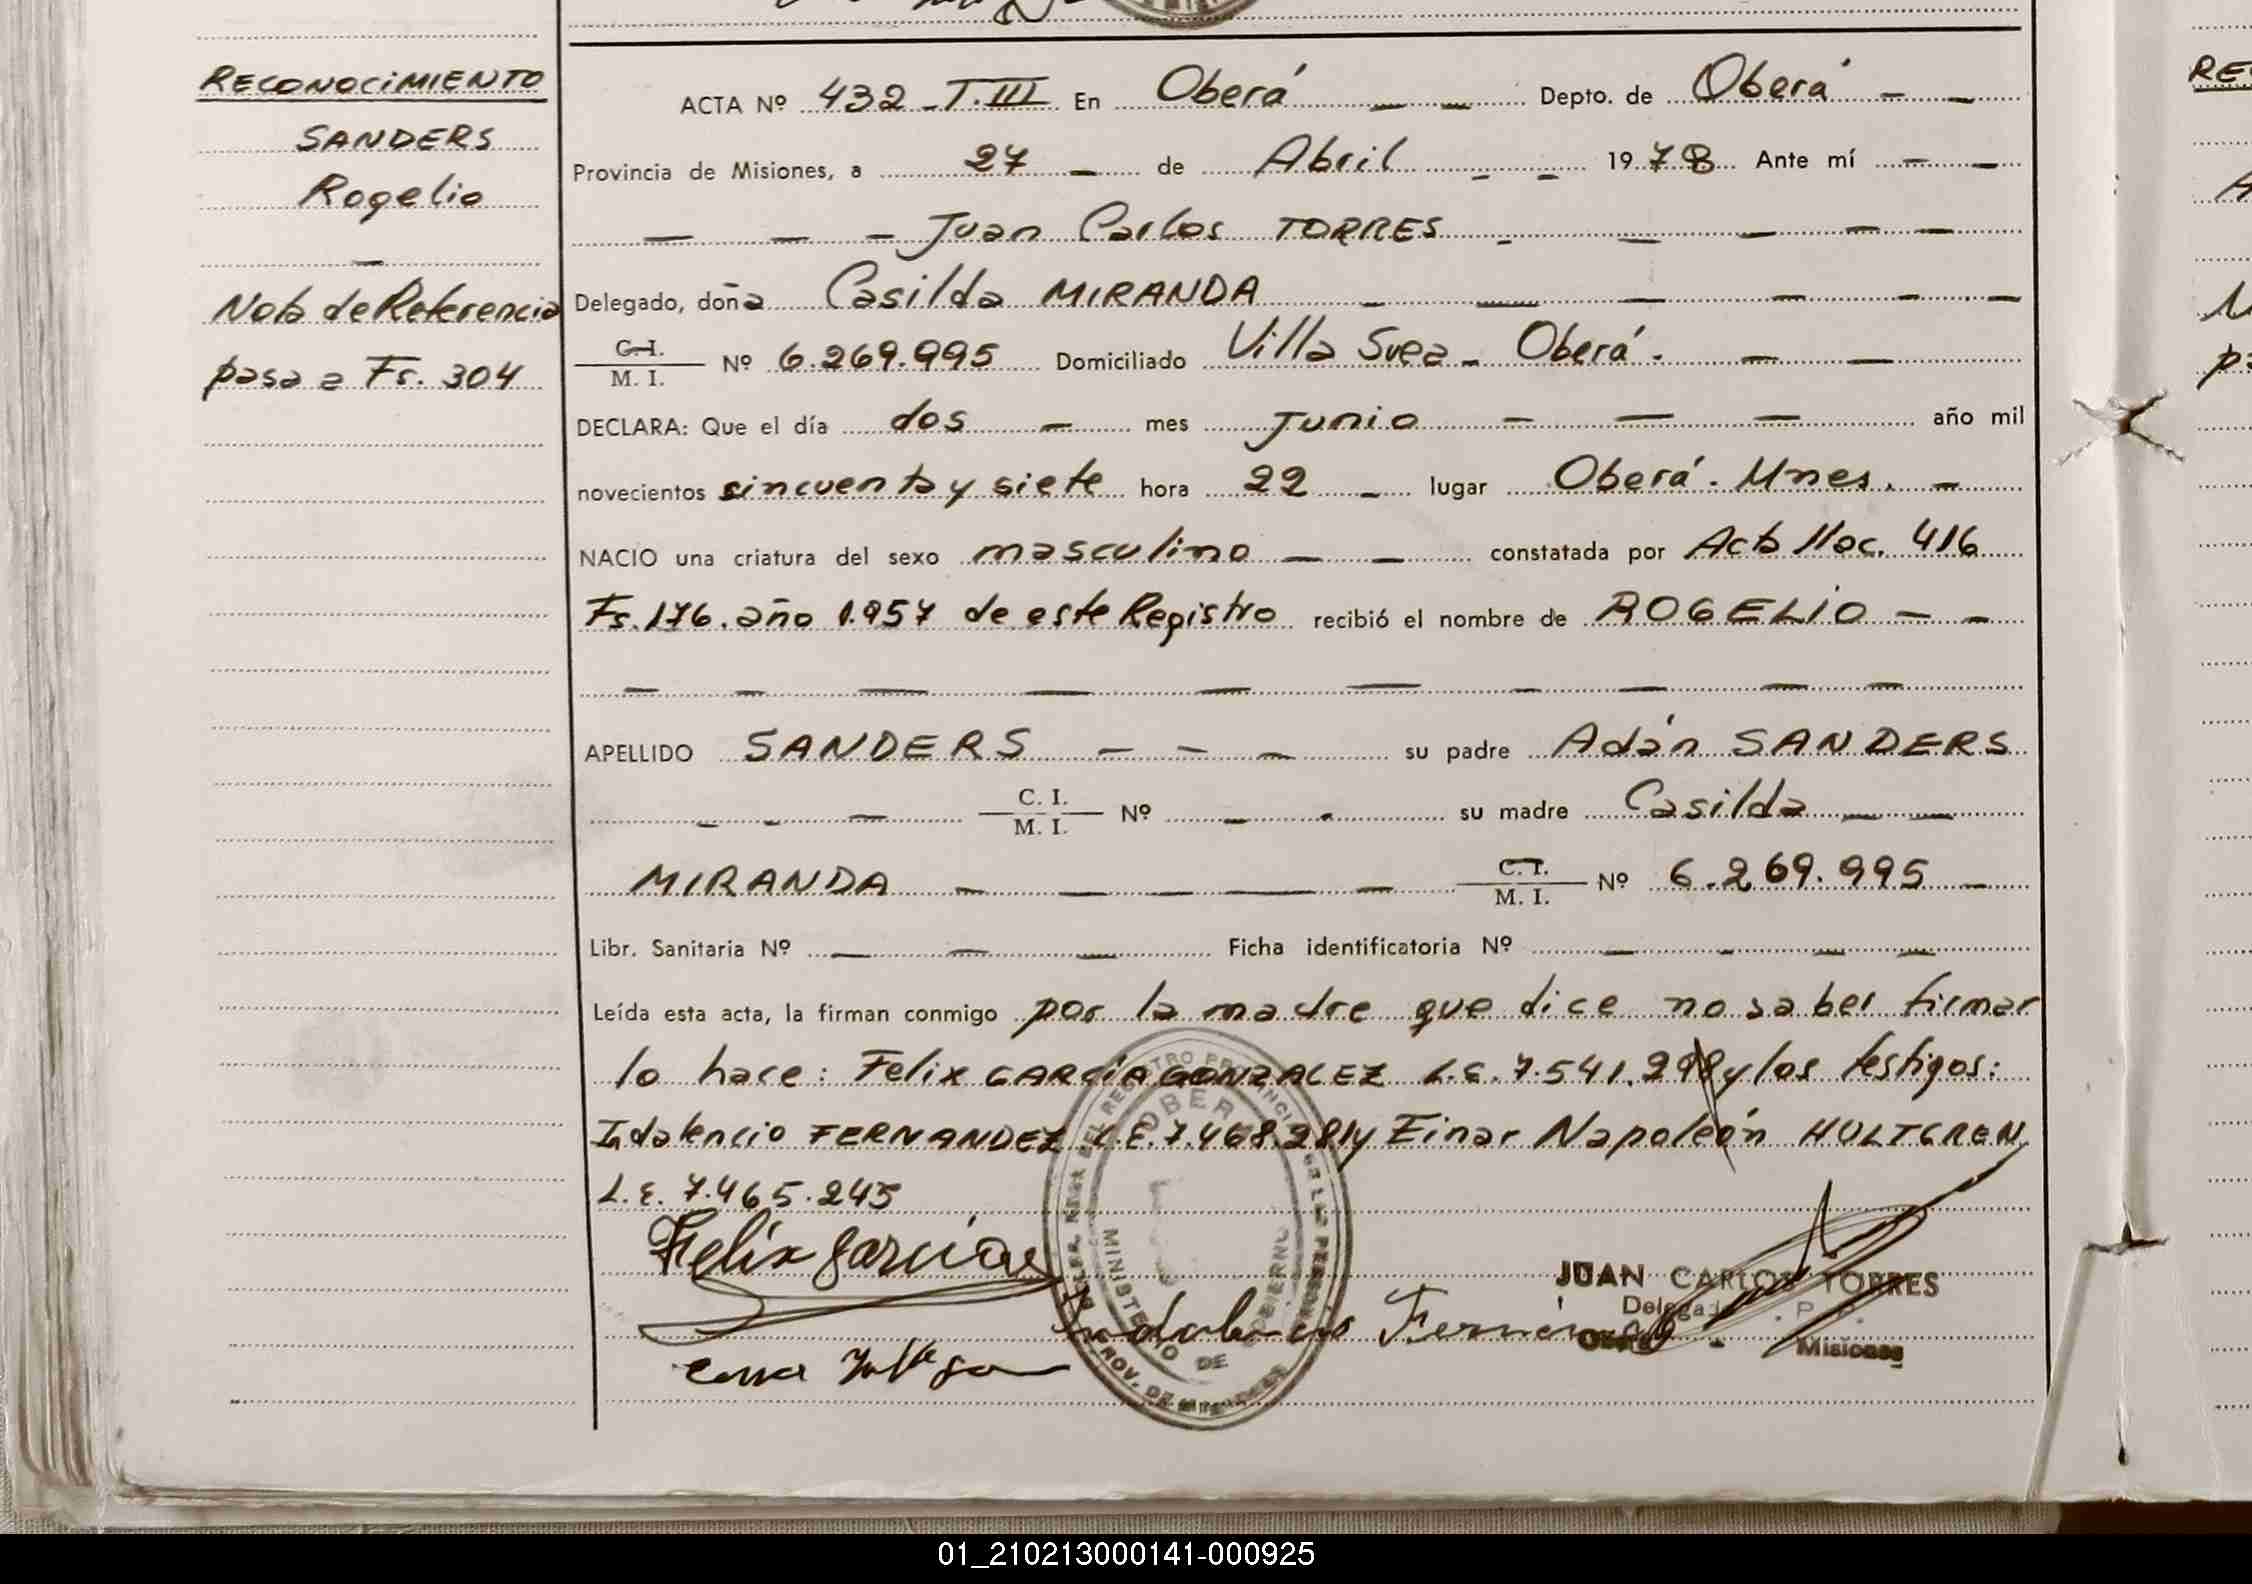 RECONOCIMIENTO
SANDERS
Rogelio
Nota de Referencia
pasa a Fs. 304
ACTA Nº 432 - T. III En Oberá — — Depto. de Oberá — —
Provincia de Misiones, a 27 — de Abril - - 1978 Ante mí — —
— — — Juan Carlos TORRES - — — — —
Delegado, doña Casilda MIRANDA — — — — — —
C. I.
M. I. Nº 6.269.995 Domiciliado Villa Svea - Oberá. — —
DECLARA: Que el día dos — mes Junio — — — año mil
novecientos sincuenta y siete hora 22 — lugar Oberá. Mnes. —
NACIO una criatura del sexo masculino — — constatada por Acta Nac. 416
Fs. 176. año 1.957 de este Registro recibió el nombre de ROGELIO — —
— — — — — — — — — —
APELLIDO SANDERS — — — su padre Adán SANDERS
- - — C. I.
M. I. Nº — - su madre Casilda — —
MIRANDA — — — — — C. I.
M. I. Nº 6.269.995 —
Libr. Sanitaria Nº — — — Ficha identificatoria Nº — - — —
Leída esta acta, la firman conmigo por la madre que dice no saber firmar
lo hace: Felix GARCIA GONZALEZ L.E. 7.541.298 y los testigos:
Indalencio FERNANDEZ L.E. 7.468.281 y Einar Napoleón HULTGREN
L.E. 7.465.245
Felix Garcia
Indalencio
JUAN CARLOS TORRES
Delegado R. P. P.
Oberá - Misiones
OBERA
MINISTERIO DE GOBIERNO
PROV. DE MISIONES
RES
01_210213000141-000925